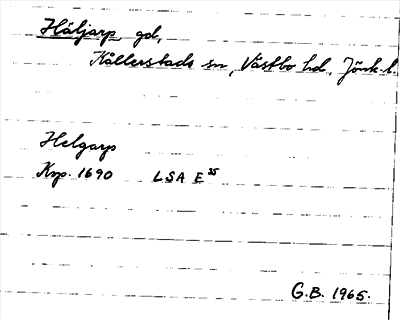 Häljarp gd,
Kållerstads sn, Västbo hd, Jönk. l.
Helgarp
Kop. 1690 LSA E 35
G.B. 1965.